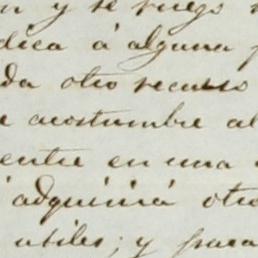 y se ruego
dica á alguna
da otro recurso
e acostumbre al
entre en una
adquirirá otro
utiles; y para